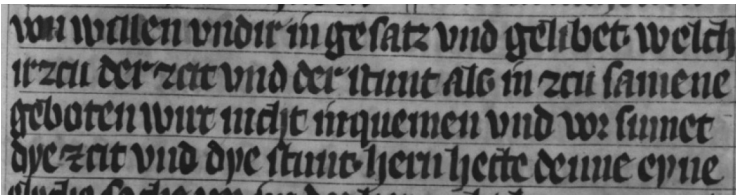 von willen vndir in gesatz vnd gelibet welch
ir zcu der zcit vnd der stunt als in zcu samene
geboten wirt nicht inquemen vnd vor sumet
dye zcit vnd dye stunt hern hette denne eyne